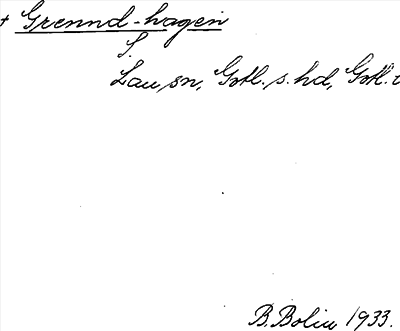 + Grennd-hagen
S.
Lau sn, Gotl. s. hd, Gotl. l
B. Bolin 1933.